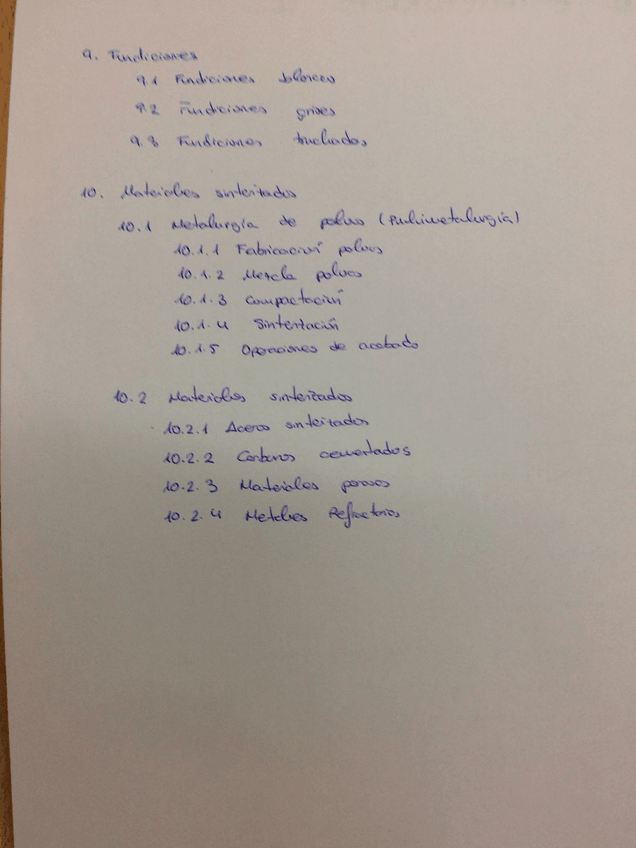 9. Fundiciones
9.1 Fundiciones blancas
9.2 Fundiciones grises
9.3 Fundiciones truchadas
10. Materiales sinterizados
10.1 Metalurgia de polvos (Pulvimetalurgia)
10.1.1 Fabricación polvos
10.1.2 Mezcla polvos
10.1.3 Compactación
10.1.4 Sinterización
10.1.5 Operaciones de acabado
10.2 Materiales sinterizados
10.2.1 Aceros sinterizados
10.2.2 Carburos cementados
10.2.3 Materiales porosos
10.2.4 Metales Refractarios